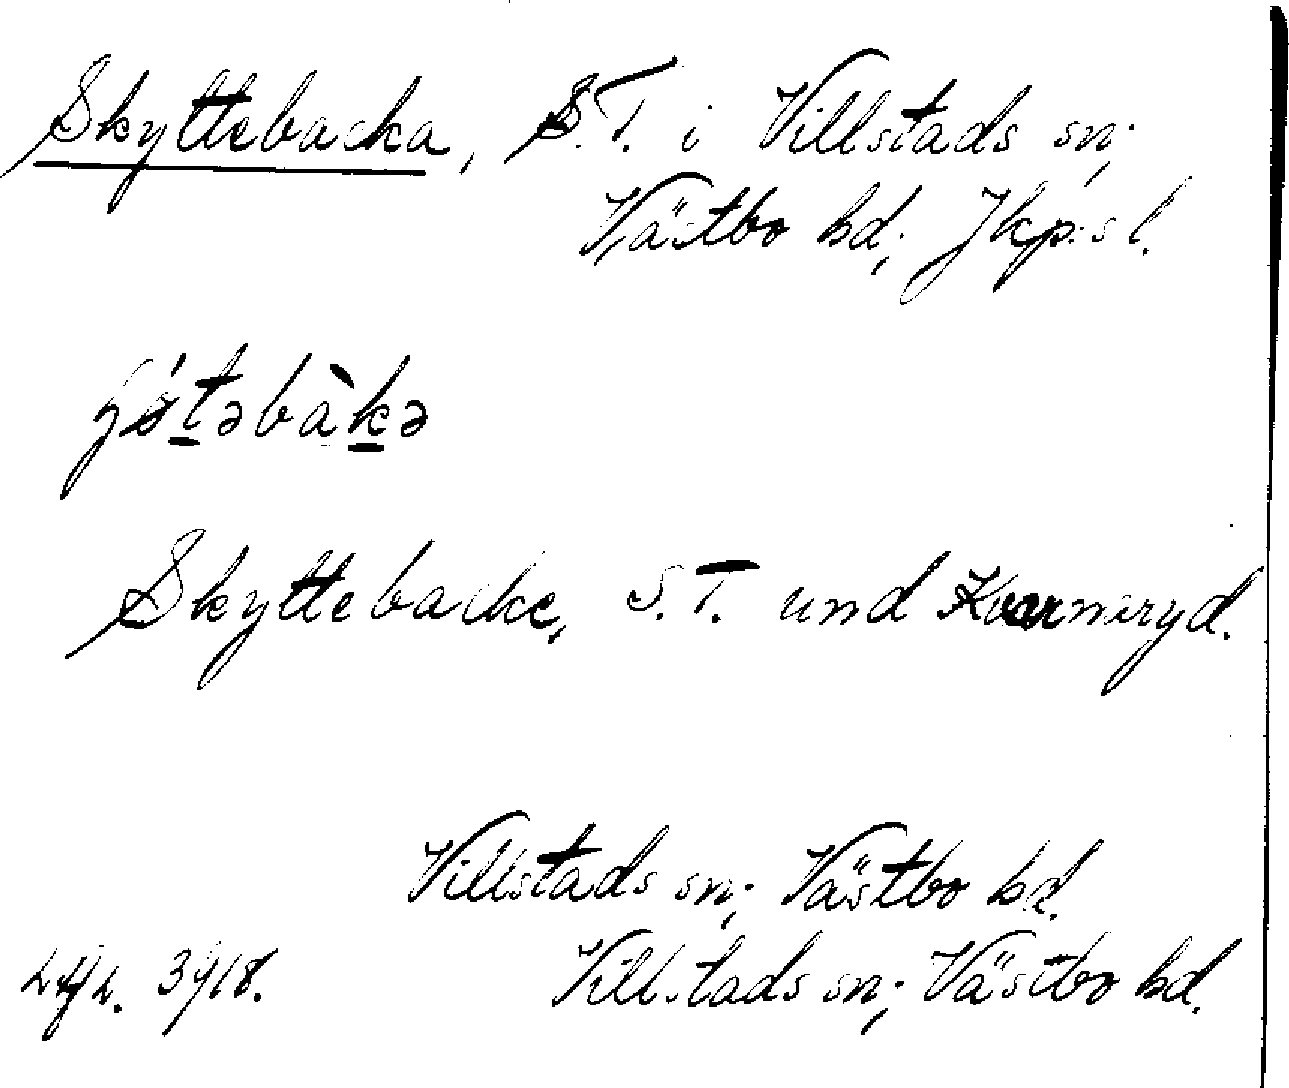 Skyttebacka, S.T. i Villstads sn;
Västbo hd; Jkp:s l.
Skyttebacke, S.T. und Kvarneryd.
Villstads sn; Västbo hd.
3/9 18. Villstads sn; Västbo hd.